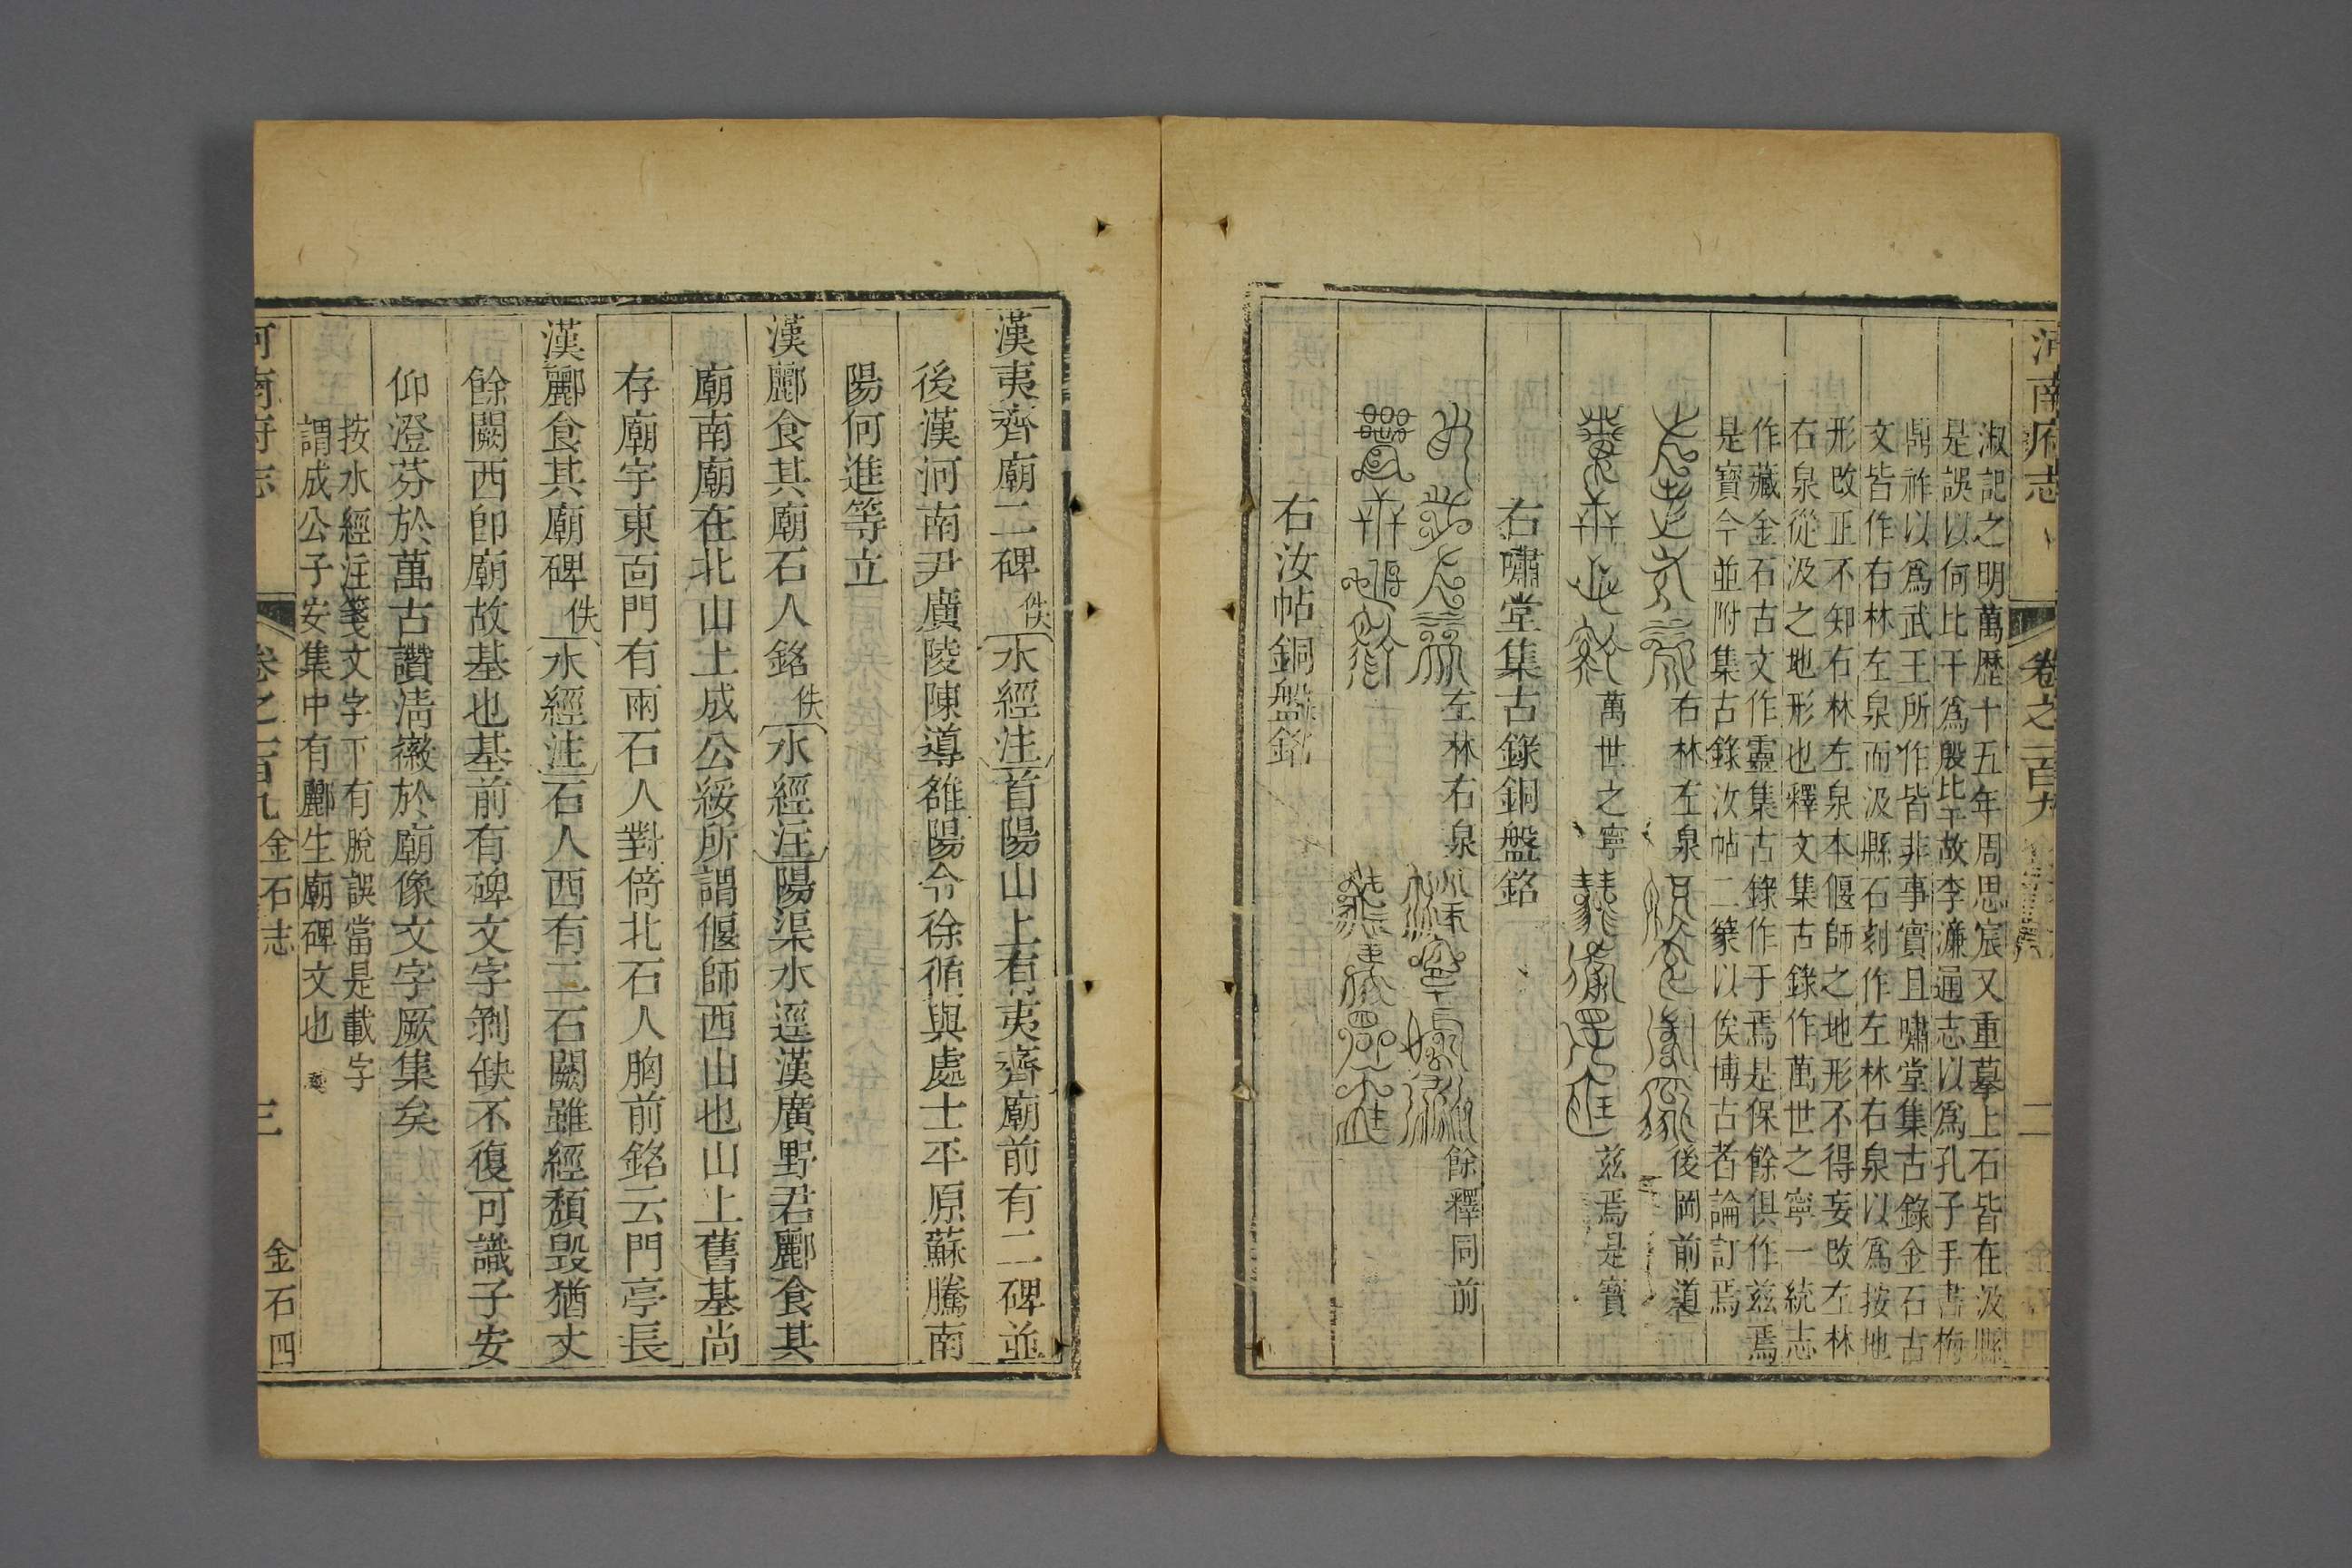 河南府志
卷之一百九
二
淑記之明萬歷十五年周思宸又重摹上石皆在汲縣
是誤以何比干為殷比干故李濂通志以為孔子手書梅
鼎祚以為武王所作皆非事實且嘯堂集古錄金石古
文皆作右林左泉而汲縣石刻作左林右泉以為按地
形改正不知右林左泉本偃師之地形不得妄改左林
右泉從汲之地形也釋文集古錄作萬世之寧一統志
作藏金石古文作靈集古錄作于焉是保餘俱作兹焉
是寳今並附集古錄汝帖二篆以俟博古者論訂焉
右林左泉
後岡前道
萬世之寧
兹焉是寳
右嘯堂集古錄銅盤銘
左林右泉
餘釋同前
右汝帖銅盤銘
漢夷齊廟二碑佚水經注首陽山上有夷齊廟前有二碑並
後漢河南尹廣陵陳導雒陽令徐循與處士平原蘇騰南
陽何進等立
漢酈食其廟石人銘佚水經注陽渠水逕漢廣野君酈食其
廟南廟在北山上成公綏所謂偃師西山也山上舊基尚
存廟宇東面門有兩石人對倚北石人胸前銘云門亭長
漢酈食其廟碑佚水經注石人西有二石闕雖經頹毀猶丈
餘闕西即廟故基也基前有碑文字剝缺不復可識子安
仰澄芬於萬古讚清徽於廟像文字厥集矣
按水經注箋文字下有脫誤當是載字
謂成公子安集中有酈生廟碑文也
河南府志
卷之一百九
金石志
三
金石四